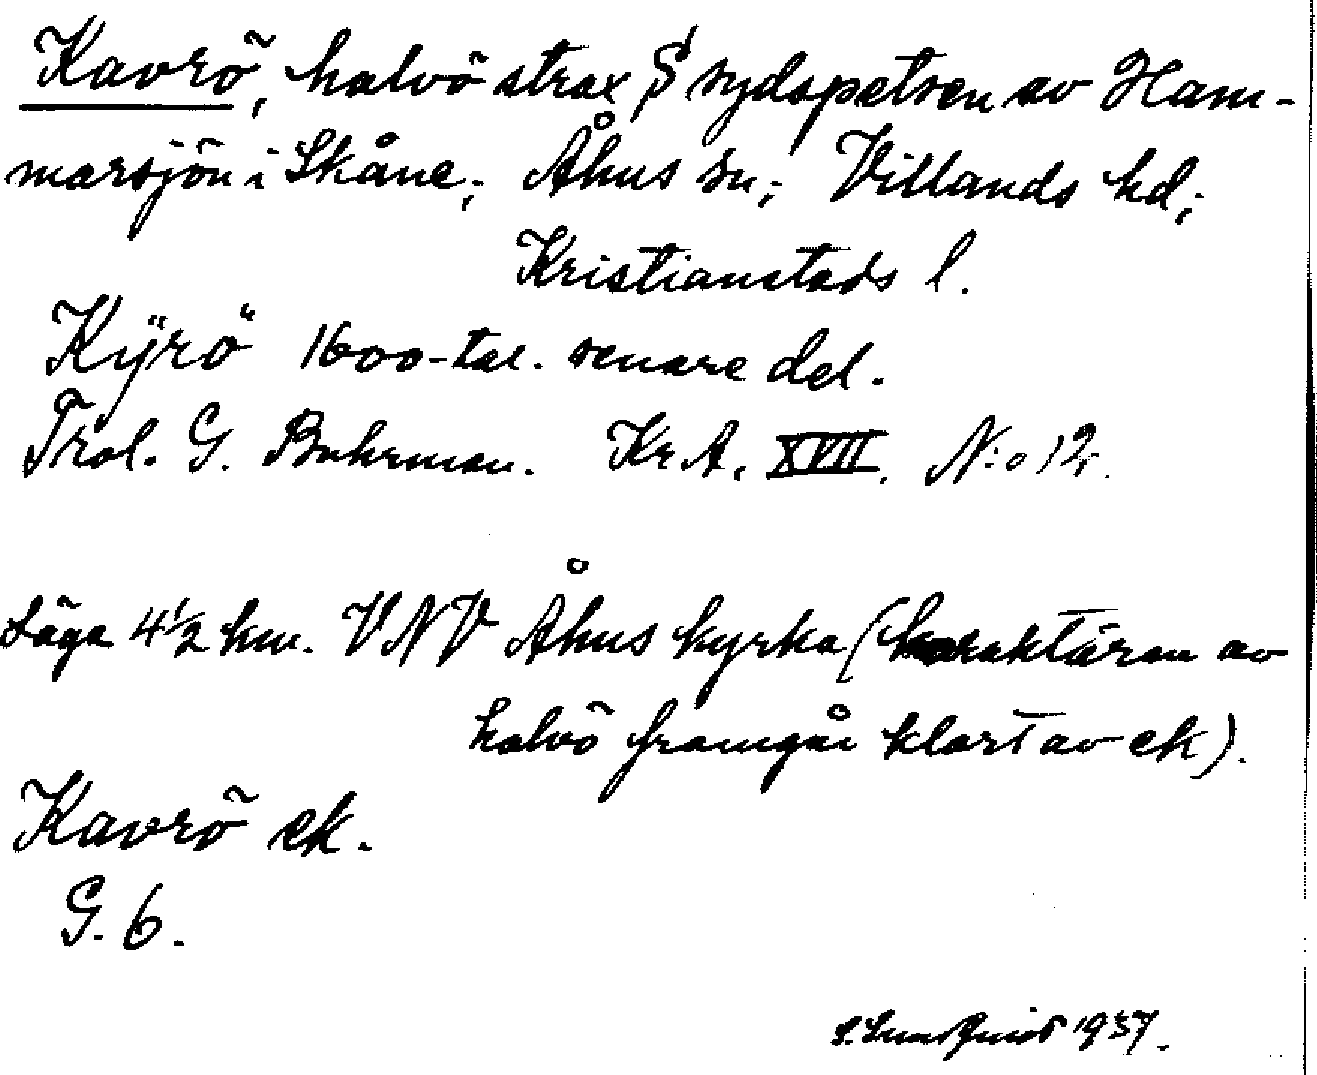 Kavrö, halvö strax S sydspetsen av Ham-
marsjön i Skåne; Åhus sn; Villands hd;
Kristianstads l.
Kÿrö" 1600-tal. senare del.
Trol. G. Buhrman. Kr A. XVII. N:o 12.
Läge 4 1/2 km. VNV Åhus kyrka (karaktären av
halvö framgår klart av ek).
Kavrö ek.
G. 6.
1937.